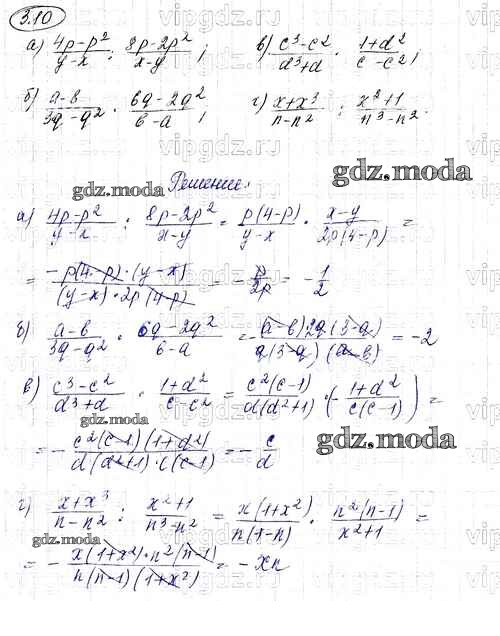 3.10
а) (4p-p²)/(y-x) : (8p-2p²)/(x-y);   в) (c³-c²)/(d³+d) · (1+d²)/(c-c²);
б) (a-b)/(3q-q²) · (6q-2q²)/(b-a);   г) (x+x³)/(n-n²) : (x²+1)/(n³-n²).
gdz.moda
Решение.
а) (4p-p²)/(y-x) : (8p-2p²)/(x-y) = p(4-p)/(y-x) · (x-y)/(2p(4-p)) =
= -p(4-p)·(y-x)/((y-x)·2p(4-p)) = -p/2p = -1/2
б) (a-b)/(3q-q²) · (6q-2q²)/(b-a) = -(a-b)2q(3-q)/(q(3-q)(a-b)) = -2
в) (c³-c²)/(d³+d) · (1+d²)/(c-c²) = c²(c-1)/(d(d²+1)) · (-(1+d²)/(c(c-1))) =
gdz.moda
= -c²(c-1)(1+d²)/(d(d²+1)·c(c-1)) = -c/d
gdz.moda
г) (x+x³)/(n-n²) : (x²+1)/(n³-n²) = x(1+x²)/(n(1-n)) · n²(n-1)/(x²+1) =
gdz.moda
= -x(1+x²)·n²(n-1)/(n(n-1)(1+x²)) = -xn